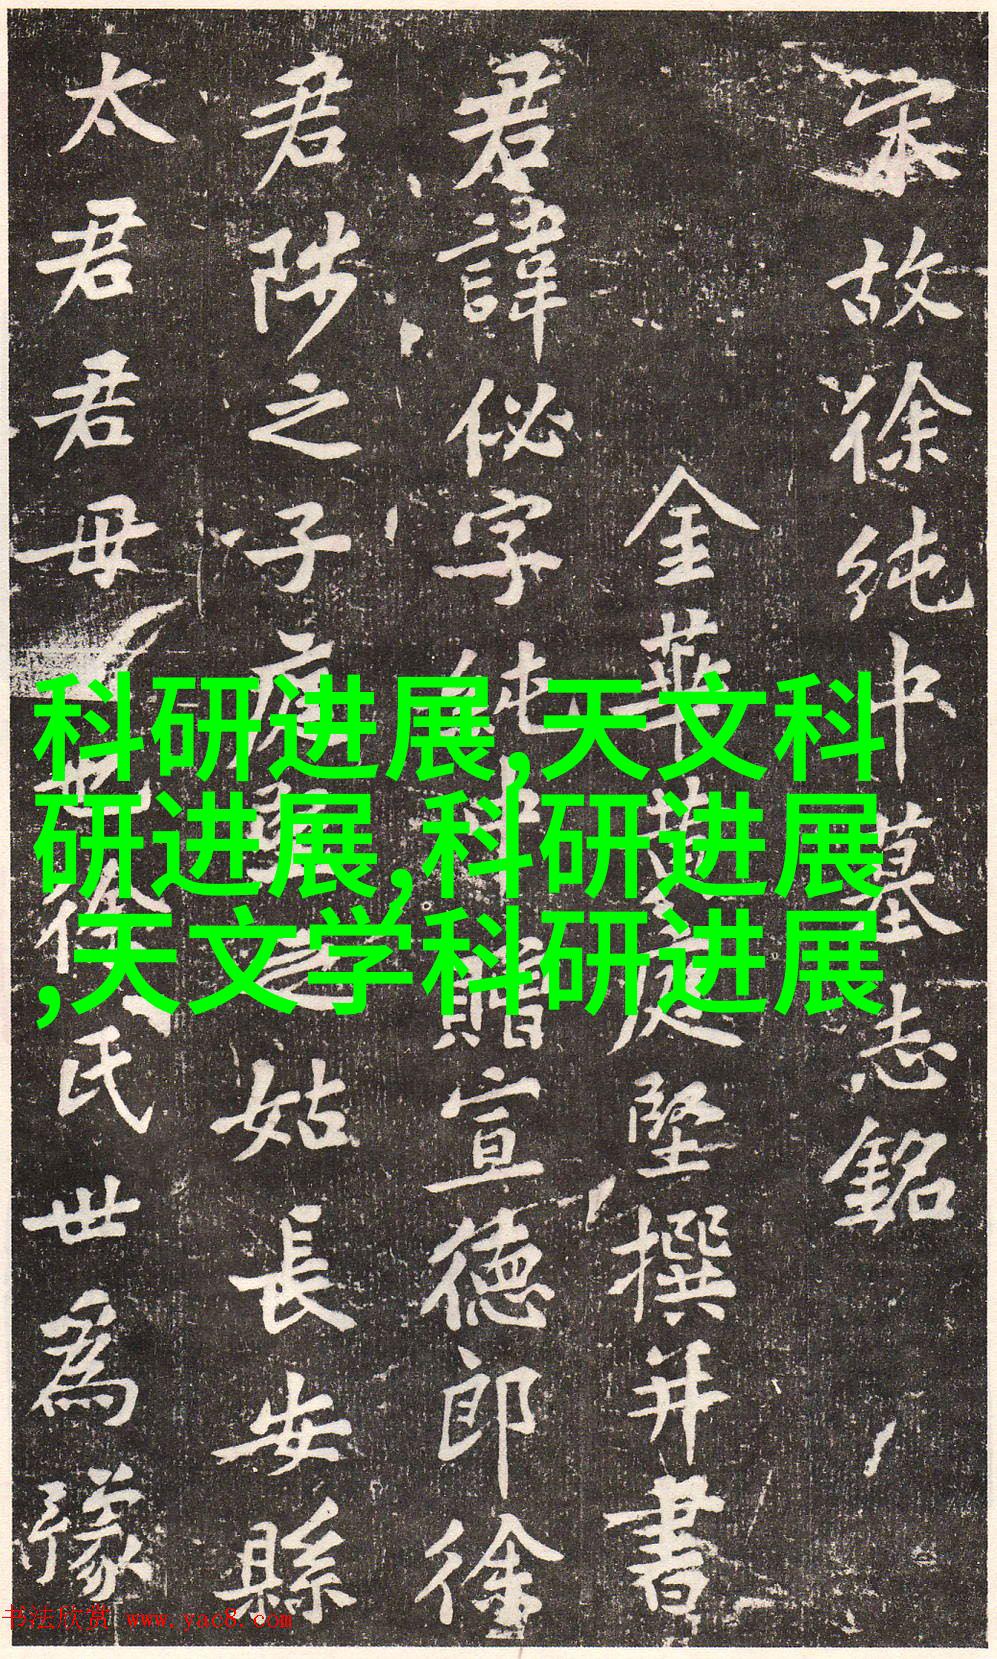 宋故徐纯中墓志銘
金華黄庭堅撰并書
君諱佖字纯中贈宣德郎徐
君陟之子庭堅之姑長安縣
太君君毋也徐氏世爲豫
科研进展,天文科
研进展,科研进展
,天文学科研进展
书法欣赏 www.yac8.com